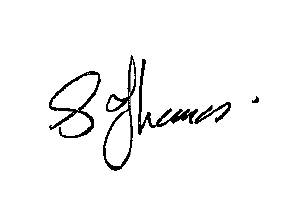 S Thomas.